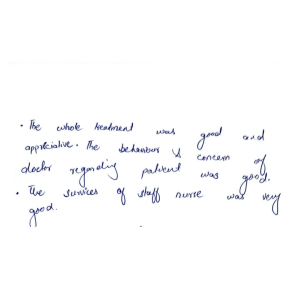 • The whole treatment was good and
appriciative. The behaviour & concern of
doctor regarding patient was good.
• The survices of staff nurse was very
good.